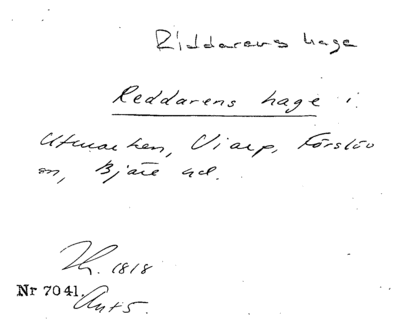 Riddarens hage
Reddarens hage i
Utmarken, Viarp, Förslöv
sn, Bjäre hd.
Th. 1818
Nr 7041.
Ant 5.